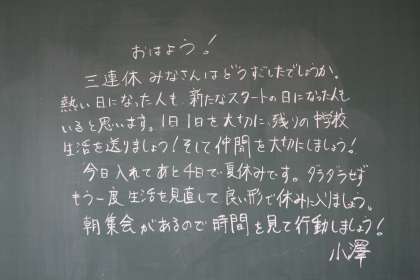 おはよう!
三連休みなさんはどうすごしたでしょうか。
熱い日になった人も、新たなスタートの日になった人も
いると思います。1日1日を大切に、残りの中学校
生活を送りましょう!そして仲間を大切にしましょう!
今日入れてあと4日で夏休みです。ダラダラせず
もう一度生活を見直して良い形で休みに入りましょう。
朝集会があるので時間を見て行動しましょう!
小澤